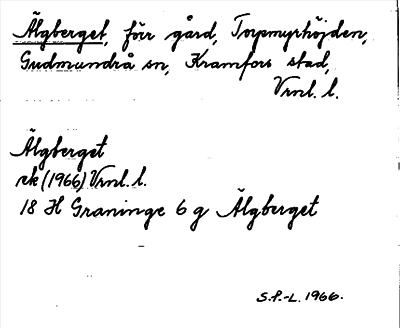 Älgberget, förr gård, Torpmyrhöjden,
Gudmundrå sn, Kramfors stad,
Vrnl. l.
Älgberget
ek (1966) Vrnl. l.
18 H Graninge 6 g Älgberget
S.P.-L. 1966.